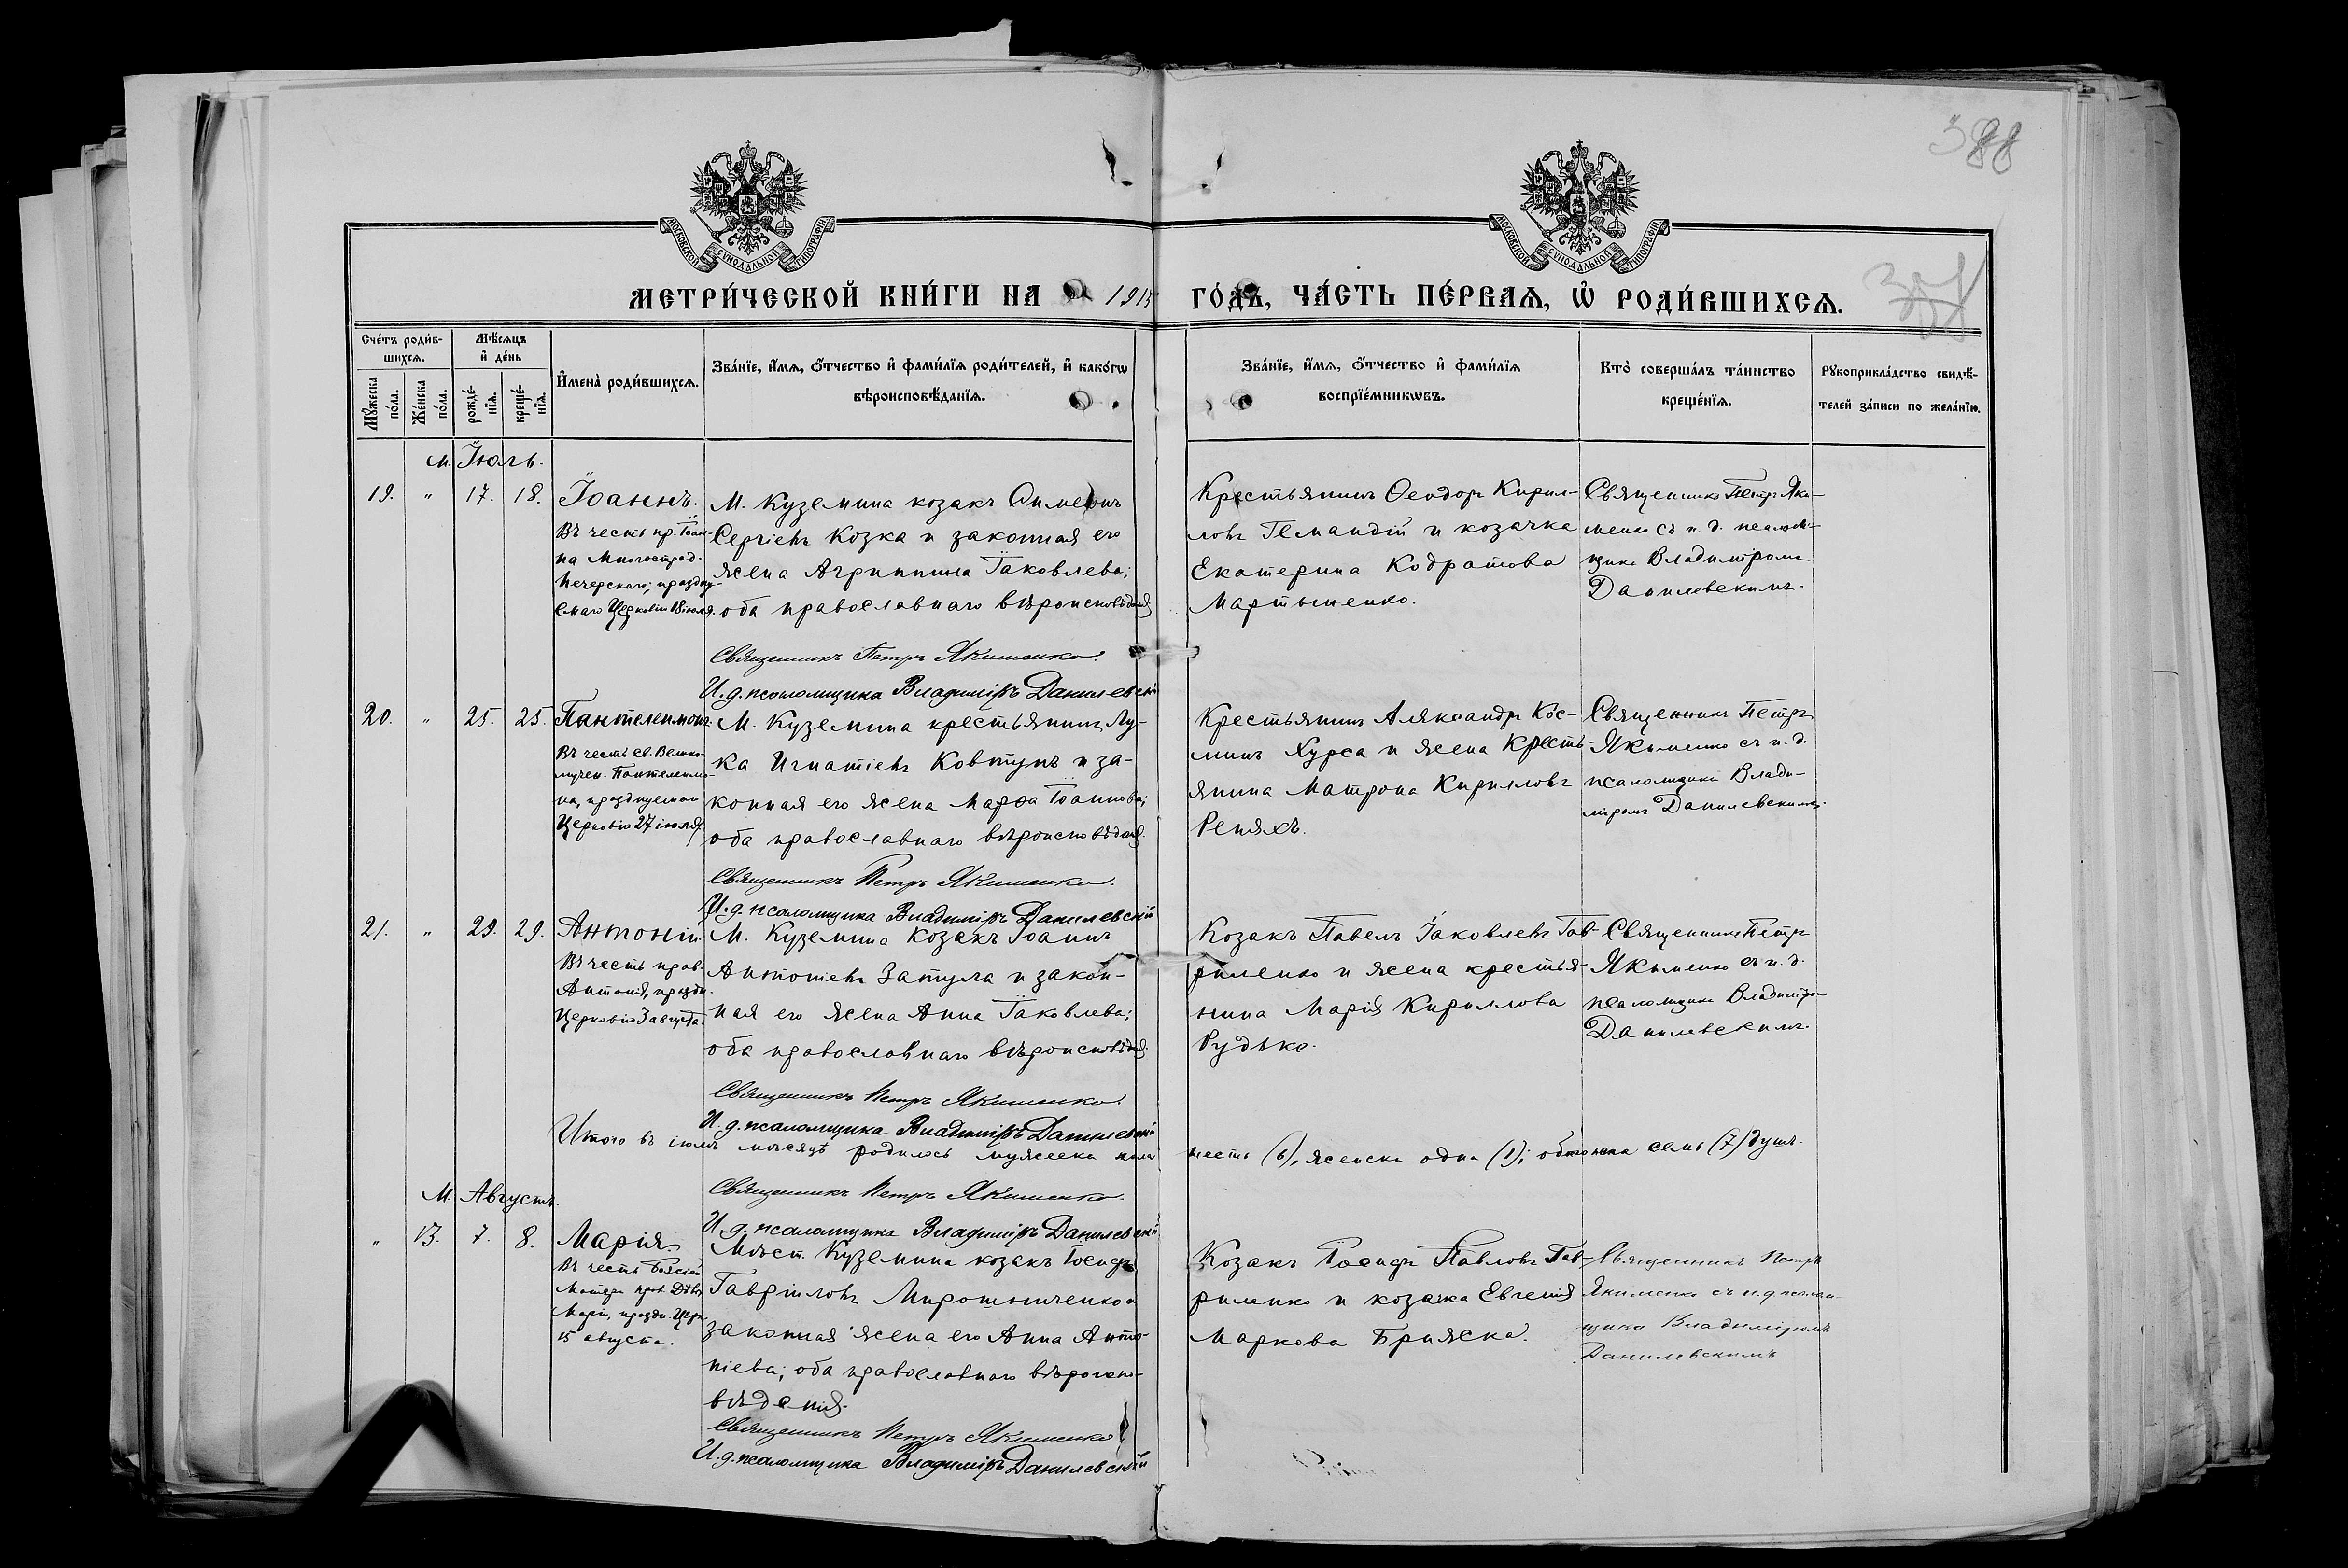 388
МОСКОВСКОЙ СУНОДАЛЬНОЙ ТИПОГРАФІИ
МОСКОВСКОЙ СУНОДАЛЬНОЙ ТИПОГРАФІИ
МЕТРИ́ЧЕСКОЙ КНИ́ГИ НА 191 ГО́ДЪ, ЧА́СТЬ ПЕ́РВАѦ, Ѡ РОДИ́ВШИХСѦ.
Сче́тъ роди́в-
шихсѧ.
Мѣ́сѧцъ
и҆ де́нь
Мꙋ́жеска
по́ла.
Же́нска
по́ла.
рожде́-
нїѧ.
креще́-
нїѧ.
И҆мена̀ роди́вшихсѧ.
Зва́нїе, и҆́мѧ, ѻ҆́тчество и҆ фами́лїѧ роди́телей, и҆ како́гѡ
вѣроисповѣ́данїѧ.
Зва́нїе, и҆́мѧ, ѻ҆́тчество и҆ фами́лїѧ
воспрїе́мникѡвъ.
Кто̀ соверша́лъ та́инство
креще́нїѧ.
Рꙋкоприкла́дство свидѣ́-
телей за́писи по жела́нїю.
М. Іюль.
19. " 17. 18.
Іоаннъ.
Въ честь пр. Іоан-
на Многострад.
Печерскаго; праздну-
емаго Церковію 18 іюля.
М. Куземина козакъ Симеонъ
Сергіевъ Козка и законная его
жена Агриппина Іаковлева;
оба православнаго вѣроисповѣданія
Священникъ Петръ Якименко.
И. д. псаломщика Владиміръ Данилевскій
Крестьянинъ Ѳеодоръ Кирил-
ловъ и козачка
Екатерина Кодратова
Мартыненко.
Священникъ Петръ Яки-
менко съ и. д. псалом-
щика Владиміромъ
Данилевскимъ.
20. " 25. 25.
Пантелеимонъ.
Въ честь св. Велико-
мучен. Пантелеимо-
на, празднуемаго
Церковію 27 іюля.
М. Куземина крестьянинъ Лу-
ка Игнатіевъ Ковтунъ и за-
конная его жена Марѳа Іоаннова;
оба православнаго вѣроисповѣданія.
Священникъ Петръ Якименко.
И. д. псаломщика Владиміръ Данилевскій
Крестьянинъ Александръ Кос-
минъ Хурса и жена кресть-
янина Матрона Кириллова
Репяхъ.
Священникъ Петръ
Якименко съ и. д.
псаломщика Влади-
міромъ Данилевскимъ.
21. " 29. 29.
Антоній.
Въ честь прав.
Антонія, праздн.
Церковію 3 августа.
М. Куземина козакъ Іоаннъ
Антоніевъ Затула и закон-
ная его жена Анна Іаковлева;
оба православнаго вѣроисповѣданія.
Священникъ Петръ Якименко.
И. д. псаломщика Владиміръ Данилевскій
Козакъ Павелъ Іаковлевъ Гав-
риленко и жена крестья-
нина Марія Кириллова
Рудько.
Священникъ Петръ
Якименко съ и. д.
псаломщика Владиміромъ
Данилевскимъ.
Итого въ іюлѣ мѣсяцѣ родилось мужеска пола шесть (6), женска одна (1); обоего пола семь (7) душъ.
Священникъ Петръ Якименко.
И. д. псаломщика Владиміръ Данилевскій
М. Августъ.
" 13. 7. 8.
Марія.
Въ честь Божіей
Матери прес. Дѣвы
Маріи, праздн. Церк.
15 августа.
Мѣст. Куземина козакъ Іосифъ
Гавріиловъ Мирошниченко и
законная жена его Анна Анто-
ніева; оба православнаго вѣроиспо-
вѣданія.
Священникъ Петръ Якименко
И. д. псаломщика Владиміръ Данилевскій
Козакъ Іосифъ Павловъ Гав-
риленко и козачка Евгенія
Маркова Бряжска.
Священникъ Петръ
Якименко съ и. д. псалом-
щика Владиміромъ
Данилевскимъ